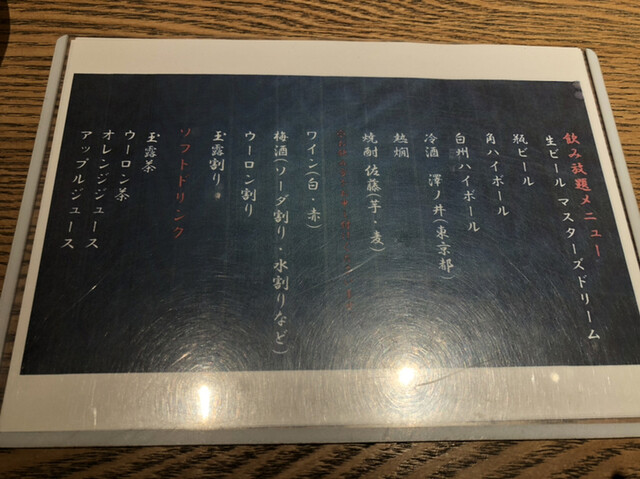 飲み放題メニュー
生ビール マスターズドリーム
瓶ビール
角ハイボール
白州ハイボール
冷酒 澤ノ井(東京都)
熱燗
焼酎 佐藤(芋・麦)
ワイン(白・赤)
梅酒(ソーダ割り・水割りなど)
ウーロン割り
玉露割り
ソフトドリンク
玉露茶
ウーロン茶
オレンジジュース
アップルジュース